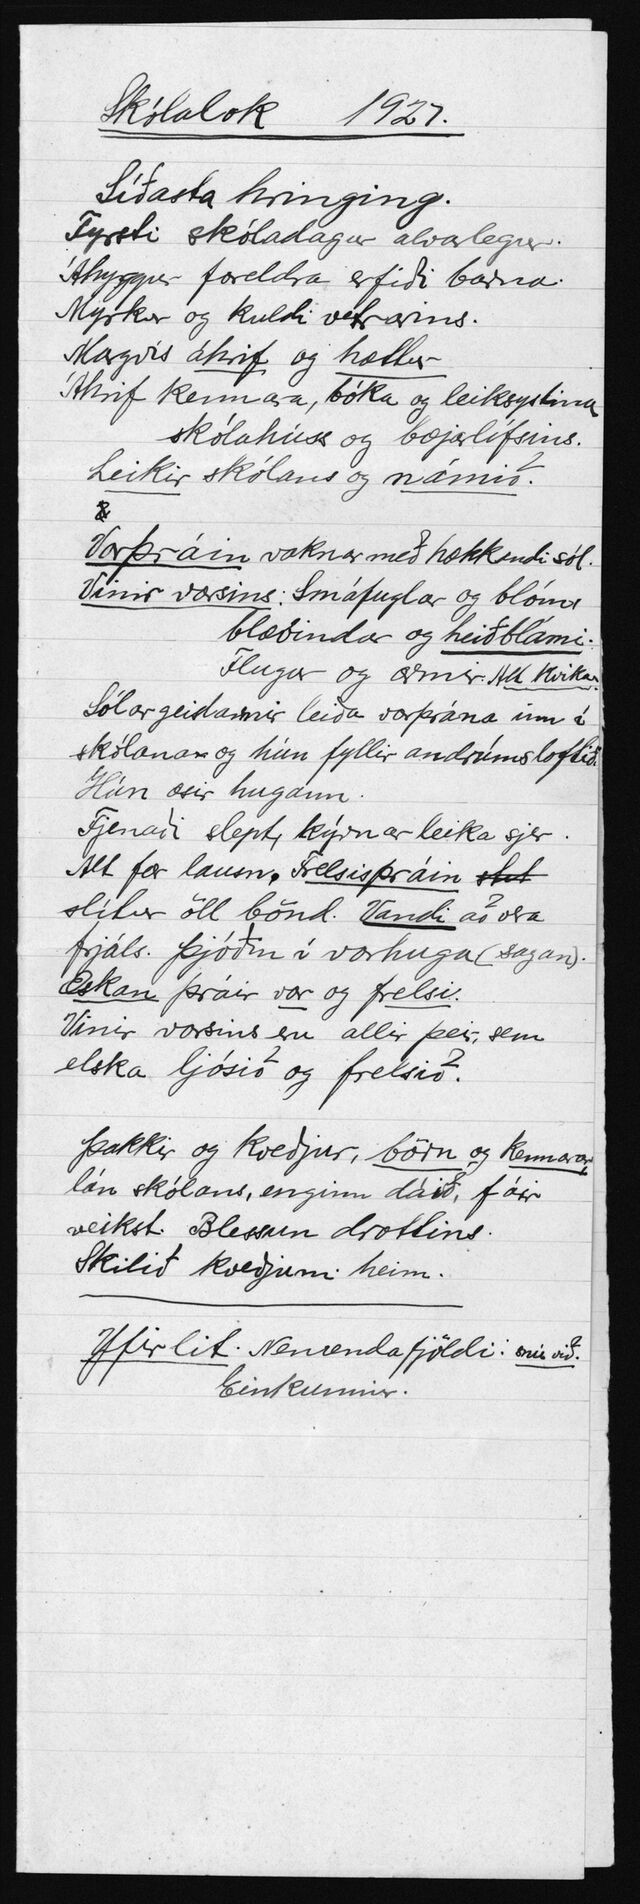 Skólalok 1927.
Síðasta hringing.
Fyrsti skóladagur alvarlegur.
Áhyggjur foreldra erfiði barna.
Myrkur og kuldi vetrarins.
Margvís áhrif og hættur
Áhrif kennara, bóka og leiksystina
skólahúss og bæjarlífsins.
Leikir skólans og námið.
Vorþráin vaknar með hækkandi sól.
Vinir vorsins: Smáfuglar og blóm
blæðindar og heiðblámi.
Flugur og ormar. Alt kvikar.
Sólargeislarnir leiða vorþrána inn í
skólana og hún fyllir andrúmsloftið.
Hún æsir hugann.
Fjenaði slept, kýrnar leika sjer.
Alt fær lausn. Frelsisþráin
slítur öll bönd. Vandi að vera
frjáls. Þjóðin í vorhuga (sagan).
Æskan þráir vor og frelsi.
Vinir vorsins eru allir þeir, sem
elska ljósið og frelsið.
Þakkir og kveðjur, börn og kennarar,
lán skólans, enginn dáið, fáir
veikst. Blessun drottins.
Skilið kveðjum heim.
Yfirlit. Nemendafjöldi: snú við.
Einkunnir.